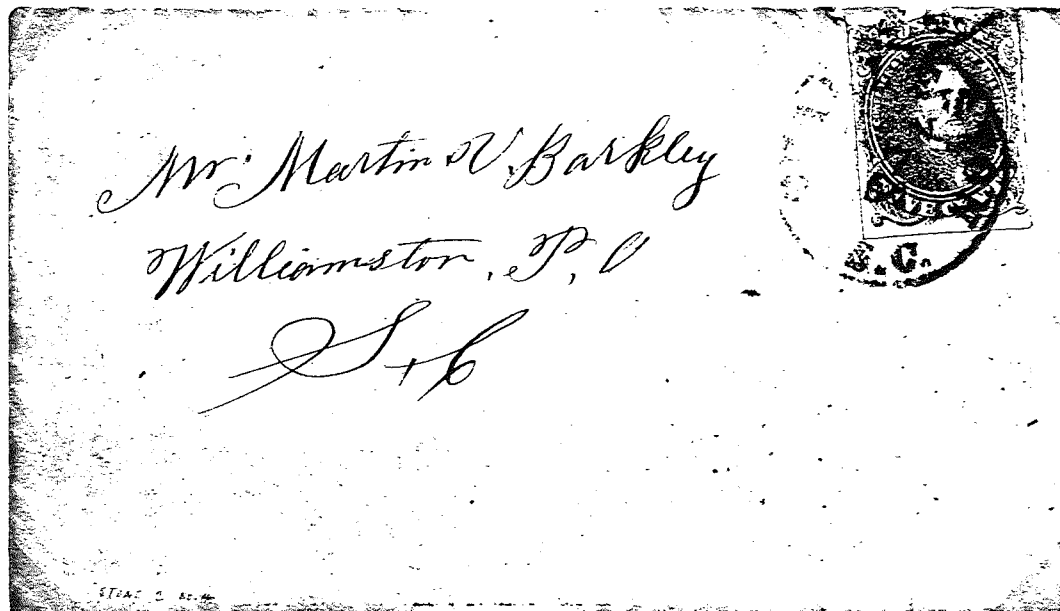 Mr. Martin V. Barkley
Williamston, P, O
S, C
S.C.
FIVE CENTS